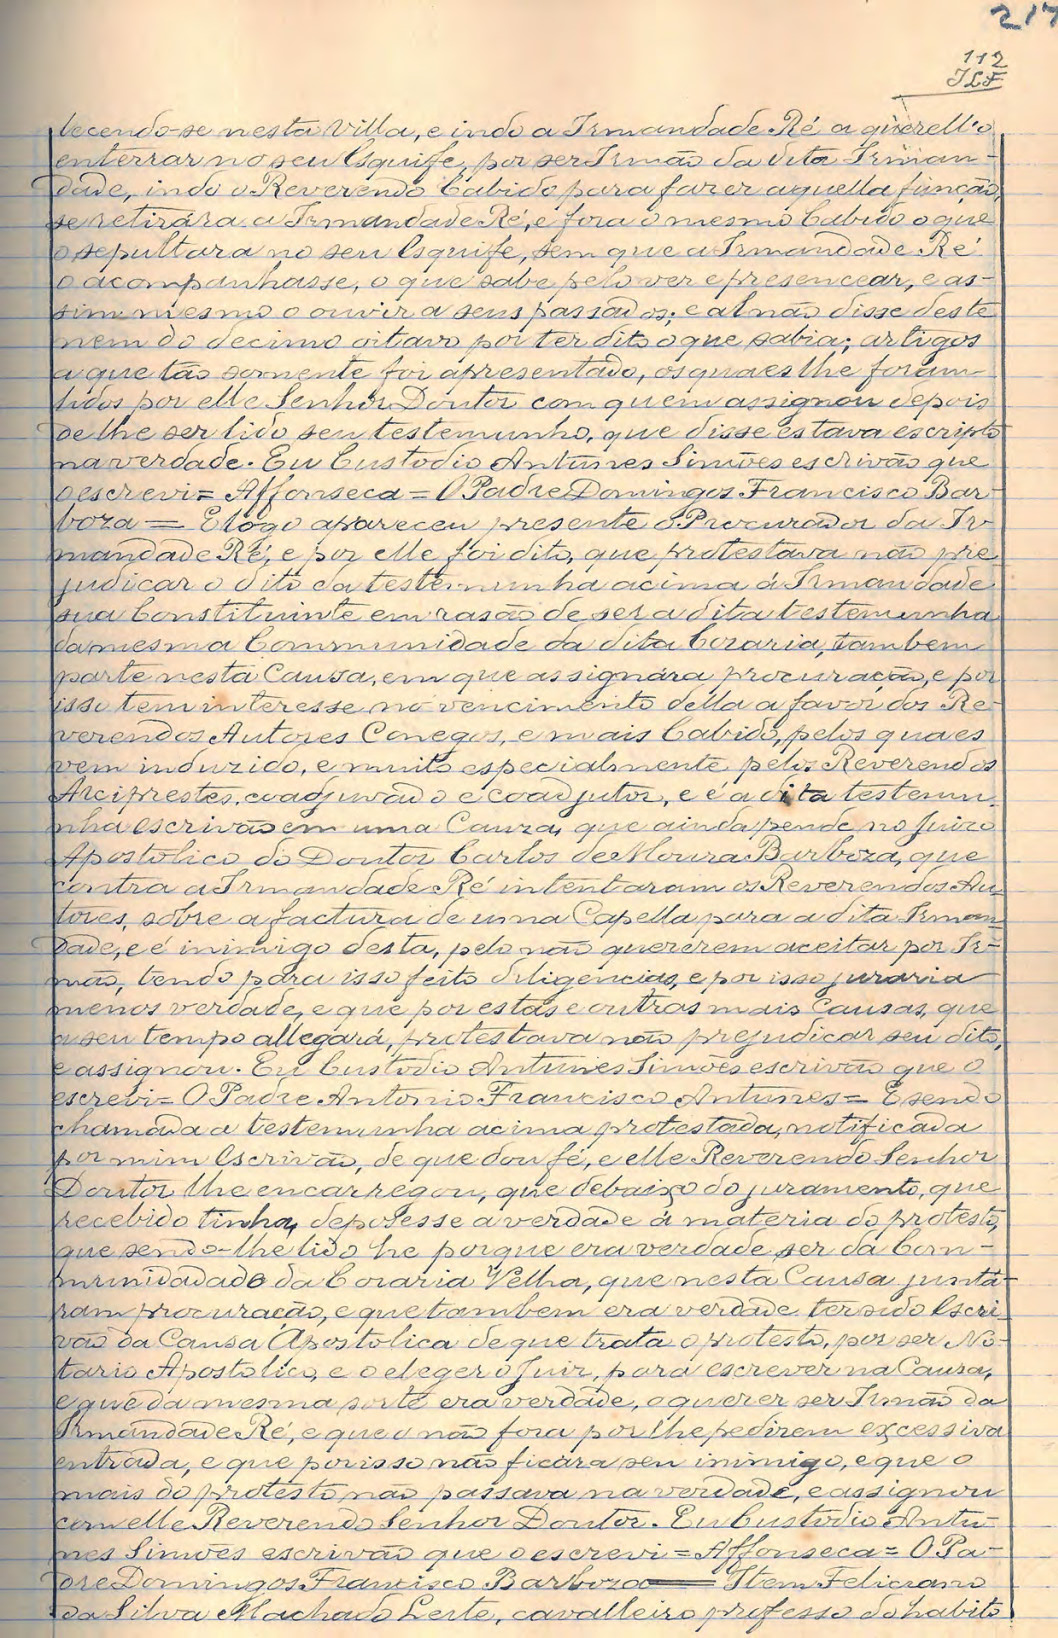 217
112
JLF
lecendo-se nesta Villa, e indo a Irmandade Ré a querell-o
enterrar no seu Esquife, por ser Irmão da dita Irman-
dade, indo o Reverendo Cabido para fazer aquella função,
se retirára a Irmandade Ré, e fora o mesmo Cabido o que
o sepultara no seu Esquife, sem que a Irmandade Ré
o acompanhasse, o que sabe pelo ver e presencear, e as-
sim mesmo o ouvir a seus passados; e al não disse deste
nem do decimo oitavo por ter dito o que sabia; artigos
a que tão somente foi apresentado, os quaes lhe foram
lidos por elle Senhor Doutor com quem assignou depois
de lhe ser lido seu testemunho, que disse estava escripto
na verdade. Eu Custodio Antunes Simões escrivão que
o escrevi = Affonseca = O Padre Domingos Francisco Bar-
boza = E logo apareceu presente o Procurador da Ir-
mandade Ré, e por elle foi dito, que protestava não pre
judicar o dito da testemunha acima á Irmandade
sua Constituinte em rasão de ser a dita testemunha
da mesma Communidade da dita Coraria, tambem
parte nesta Causa, em que assignára procuração, e por
isso tem interesse no vencimento della a favor dos Re-
verendos Autores Conegos, e mais Cabido, pelos quaes
vem induzido, e muito especialmente pelos Reverendos
Arciprestes, coadjuvado e coadjutor, e é a dita testemu-
nha escrivão em uma Cauza, que ainda pende no Juizo
Apostolico do Doutor Carlos de Moura Barboza, que
contra a Irmandade Ré intentaram os Reverendos Au-
tores, sobre a factura de uma Capella para a dita Irman
dade, e é inimigo desta, pelo não quererem aceitar por Ir-
mão, tendo para isso feito diligencias, e por isso juraria
menos verdade, e que por estas e outras mais Causas, que
a seu tempo allegará, protestava não prejudicar seu dito,
e assignou. Eu Custodio Antunes Simões escrivão que o
escrevi = O Padre Antonio Francisco Antunes = E sendo
chamada a testemunha acima protestada, notificada
por mim Escrivão, de que dou fé, e elle Reverendo Senhor
Doutor lhe encarregou, que debaixo do juramento, que
recebido tinha, depozesse a verdade á materia do protesto,
que sendo-lhe lido he porque era verdade ser da Com-
munidadade da Coraria Velha, que nesta Causa juntá-
ram procuração, e que tambem era verdade ter sido Escri
vão da Causa Apostolica de que trata o protesto, por ser No-
tario Apostolico, e o eleger o Juiz, para escrever na Causa,
e que da mesma sorte era verdade, o querer ser Irmão da
Irmandade Ré, e que o não fora por lhe pedirem excessiva
entrada, e que por isso não ficára seu inimigo, e que o
mais do protesto não passava na verdade, e assignou
com elle Reverendo Senhor Doutor. Eu Custodio Antu-
nes Simões escrivão que o escrevi = Affonseca = O Pa-
dre Domingos Francisco Barboza = Item Feliciano
da Silva Machado Leite, cavalleiro professo do habito